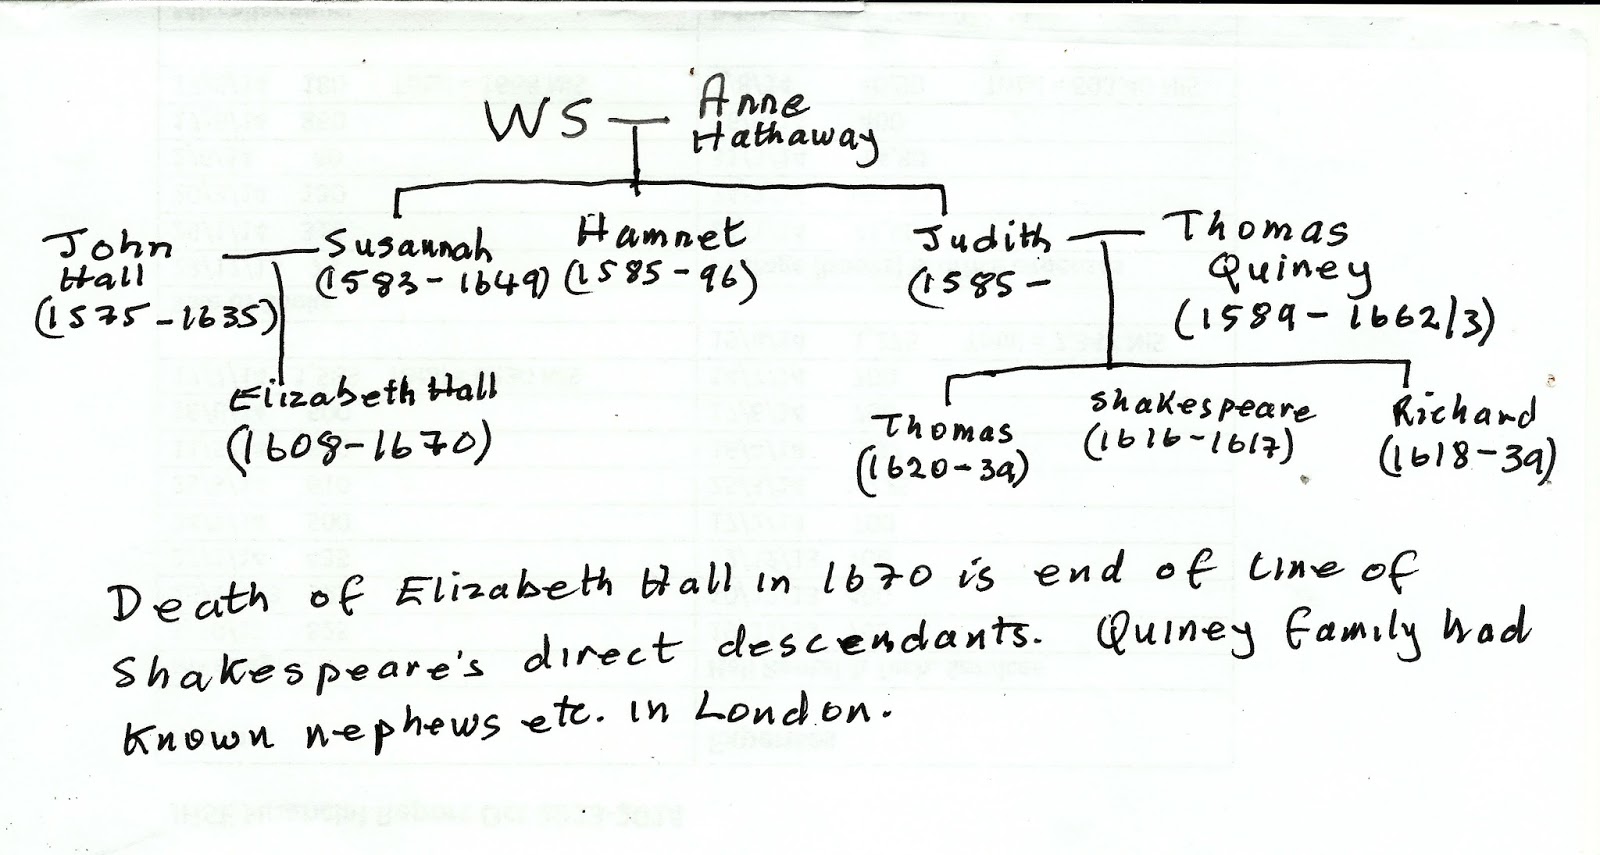 WS Anne
Hathaway
John Susannah Hamnet Judith Thomas
Hall (1583-1649) (1585-96) (1585- Quiney
(1575-1635) (1589-1662/3)
Elizabeth Hall Thomas Shakespeare Richard
(1608-1670) (1620-39) (1616-1617) (1618-39)
Death of Elizabeth Hall in 1670 is end of line of
Shakespeare's direct descendants. Quiney family had
known nephews etc. in London.